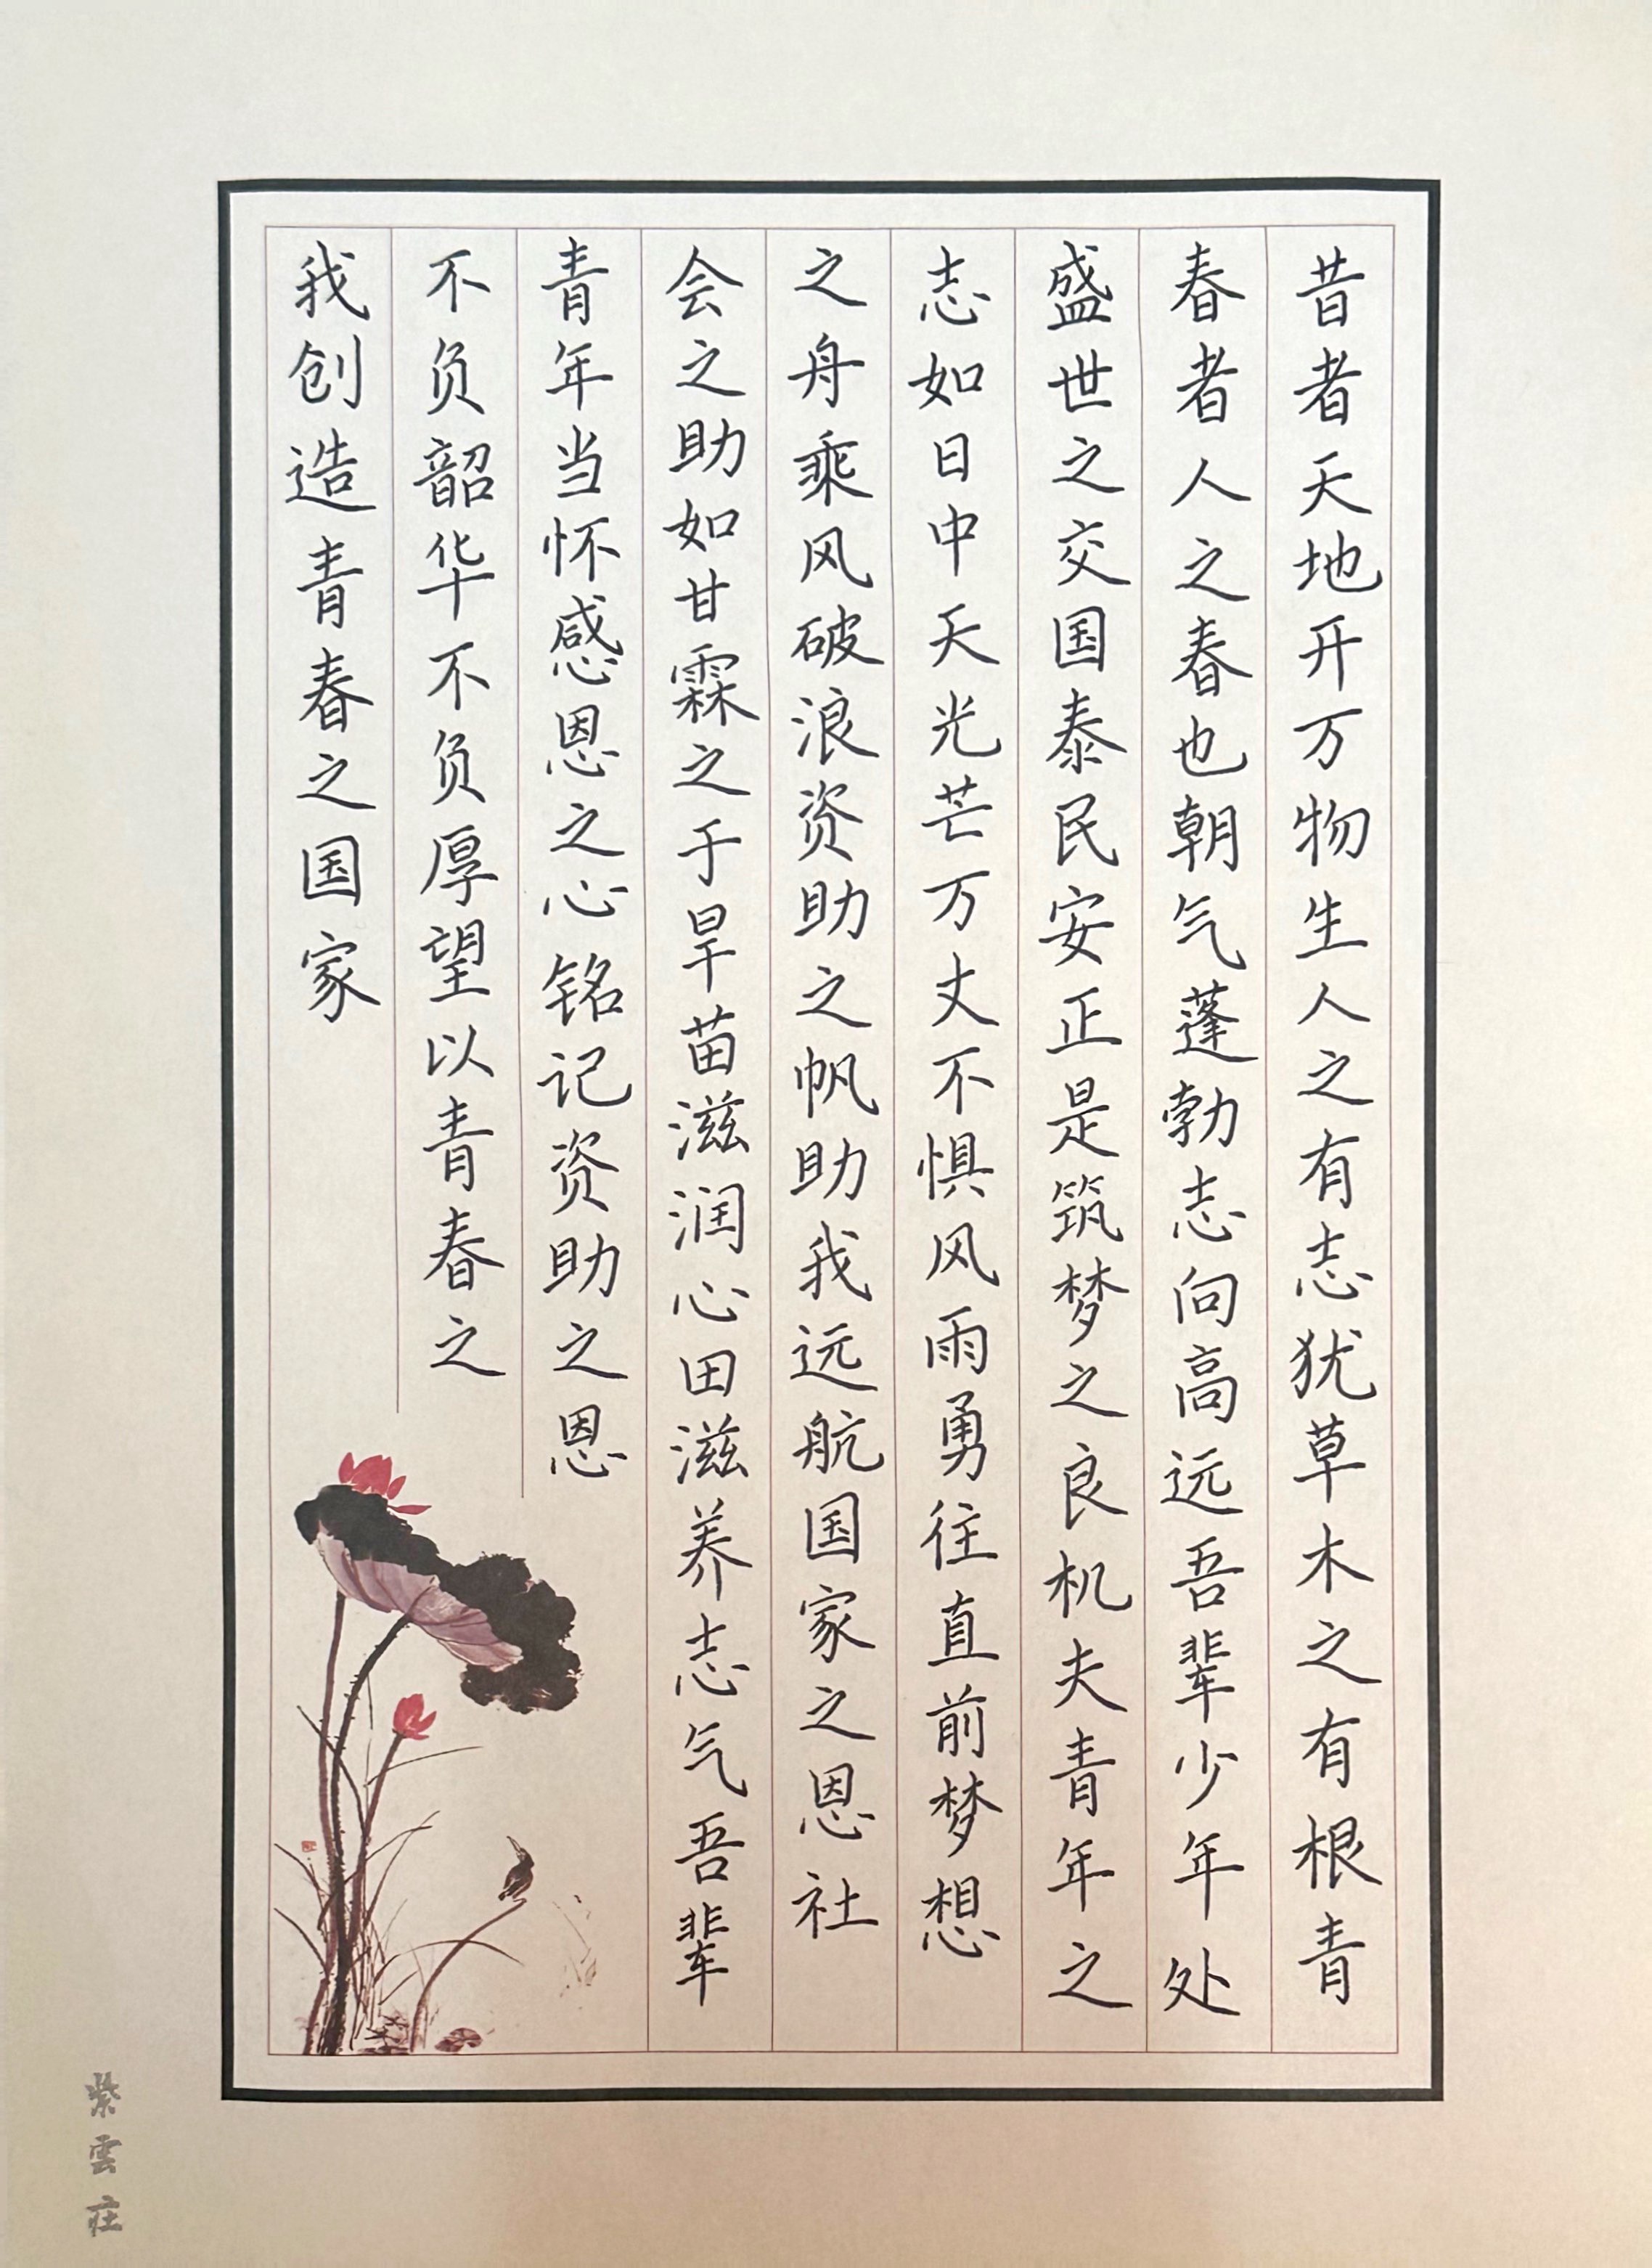 昔者天地开万物生人之有志犹草木之有根青
春者人之春也朝气蓬勃志向高远吾辈少年处
盛世之交国泰民安正是筑梦之良机夫青年之
志如日中天光芒万丈不惧风雨勇往直前梦想
之舟乘风破浪资助之帆助我远航国家之恩社
会之助如甘霖之于旱苗滋润心田滋养志气吾辈
青年当怀感恩之心铭记资助之恩
不负韶华不负厚望以青春之
我创造青春之国家
紫雲莊